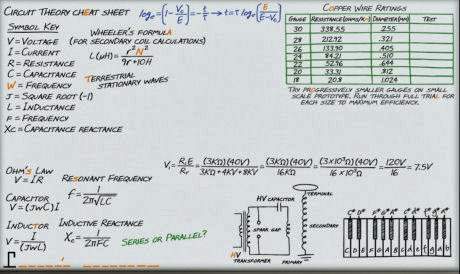 CIRCUIT THEORY CHEAT SHEET
log e = [1 - Vc/E] = -t/τ → t = τ log e [E/(E-Vc)]
SYMBOL KEY
V = VOLTAGE
I = CURRENT
R = RESISTANCE
C = CAPACITANCE
W = FREQUENCY
J = SQUARE ROOT (-1)
L = INDUCTANCE
F = FREQUENCY
XC = CAPACITANCE REACTANCE
WHEELER'S FORMULA
(FOR SECONDARY COIL CALCULATIONS)
L(µH) = r²N² / 9r + 10H
TERRESTRIAL
STATIONARY WAVES
COPPER WIRE RATINGS
GAUGE RESISTANCE (OHMS/K') DIAMETER (MM) TEST
30 338.55 .255
28 212.92 .321
26 133.90 .405
24 84.21 .510
22 52.96 .644
20 33.31 .812
18 20.8 1.024
TRY PROGRESSIVELY SMALLER GAUGES ON SMALL
SCALE PROTOTYPE. RUN THROUGH FULL TRIAL FOR
EACH SIZE TO MAXIMUM EFFICIENCY.
OHM'S LAW
V = IR
RESONANT FREQUENCY
f = 1 / 2π√LC
CAPACITOR
V = (JWC)I
INDUCTOR
V = I / (JWL)
INDUCTIVE REACTANCE
Xc = 1 / 2πFC
SERIES OR PARALLEL?
= (3KΩ)(40V) / 3KΩ + 4KΩ + 8KΩ = (3KΩ)(40V) / 16KΩ = (3 × 10³Ω)(40V) / 16 × 10³Ω = 120V / 16 = 7.5V
HV CAPACITOR
TERMINAL
SPARK GAP
SECONDARY
HV
TRANSFORMER
PRIMARY